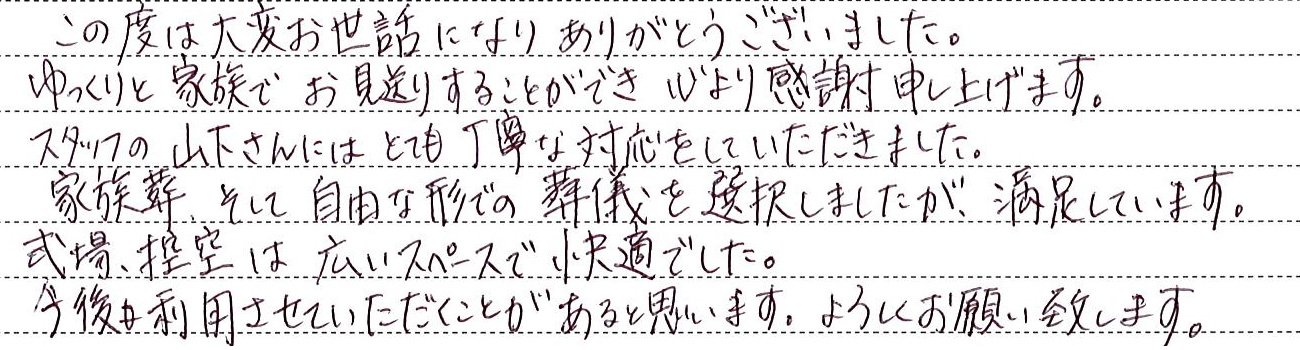 この度は大変お世話になりありがとうございました。
ゆっくりと家族でお見送りすることができ心より感謝申し上げます。
スタッフの山下さんにはとても丁寧な対応をしていただきました。
家族葬、そして自由な形での葬儀を選択しましたが、満足しています。
式場、控室は広いスペースで快適でした。
今後も利用させていただくことがあると思います。よろしくお願い致します。